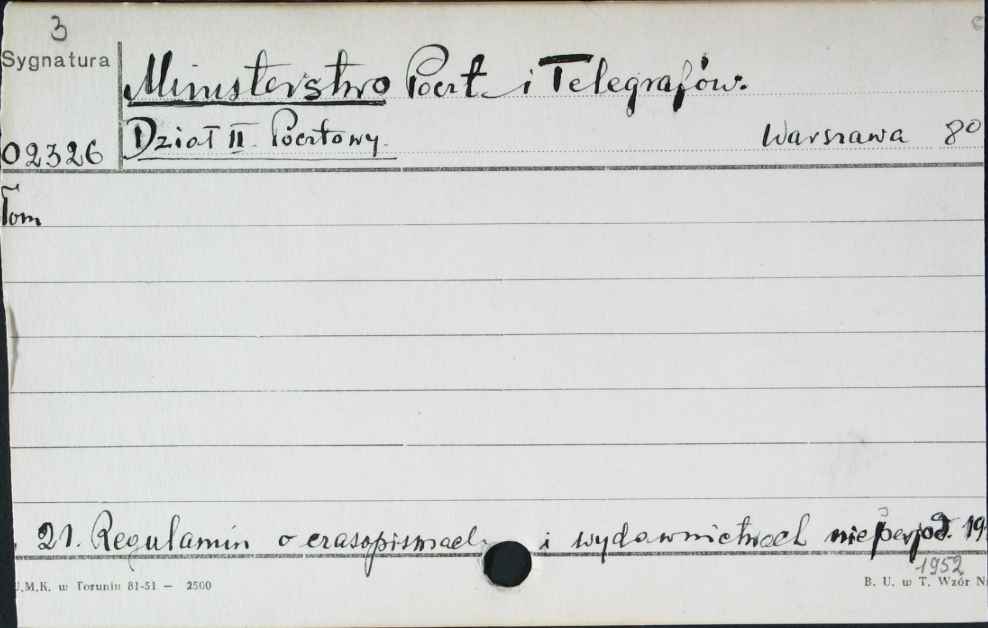 3
Sygnatura
Ministerstwo Poczt i Telegrafów.
02326 Dział II. Pocztowy. Warszawa 8º
Tom
21. Regulamin o czasopismach i wydawnictwach nieperjod. 19
1952
U.M.K. w Toruniu 81-51 — 2500 B. U. w T. Wzór N